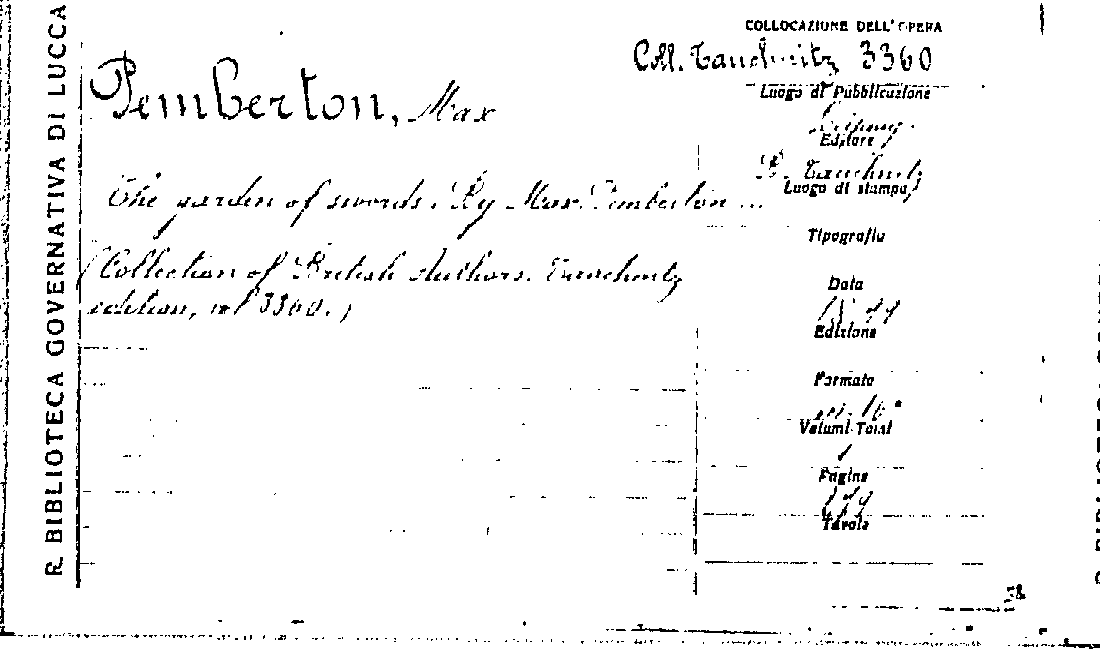 R. BIBLIOTECA GOVERNATIVA DI LUCCA
COLLOCAZIONE DELL'OPERA
Coll. Tauchnitz 3360
Pemberton, Max
Luogo di Pubblicazione
Leipzig
Editore
B. Tauchnitz
Luogo di stampa
The garden of swords. By Max Pemberton ...
Tipografia
(Collection of British Authors. Tauchnitz
edition, vol 3360.)
Data
Edizione
Formato
in-16°
Volumi Totali
1
Pagine
Tavole